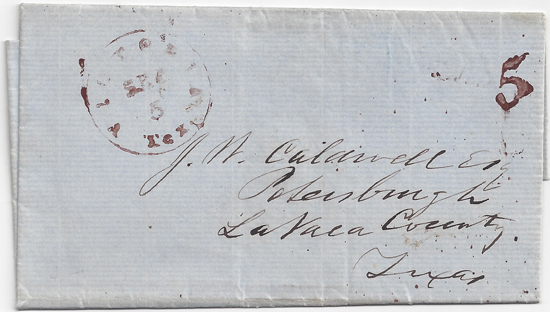 Texas
5
5
J. W. Caldwell Esqr
Petersburgh
LaVaca County
Texas